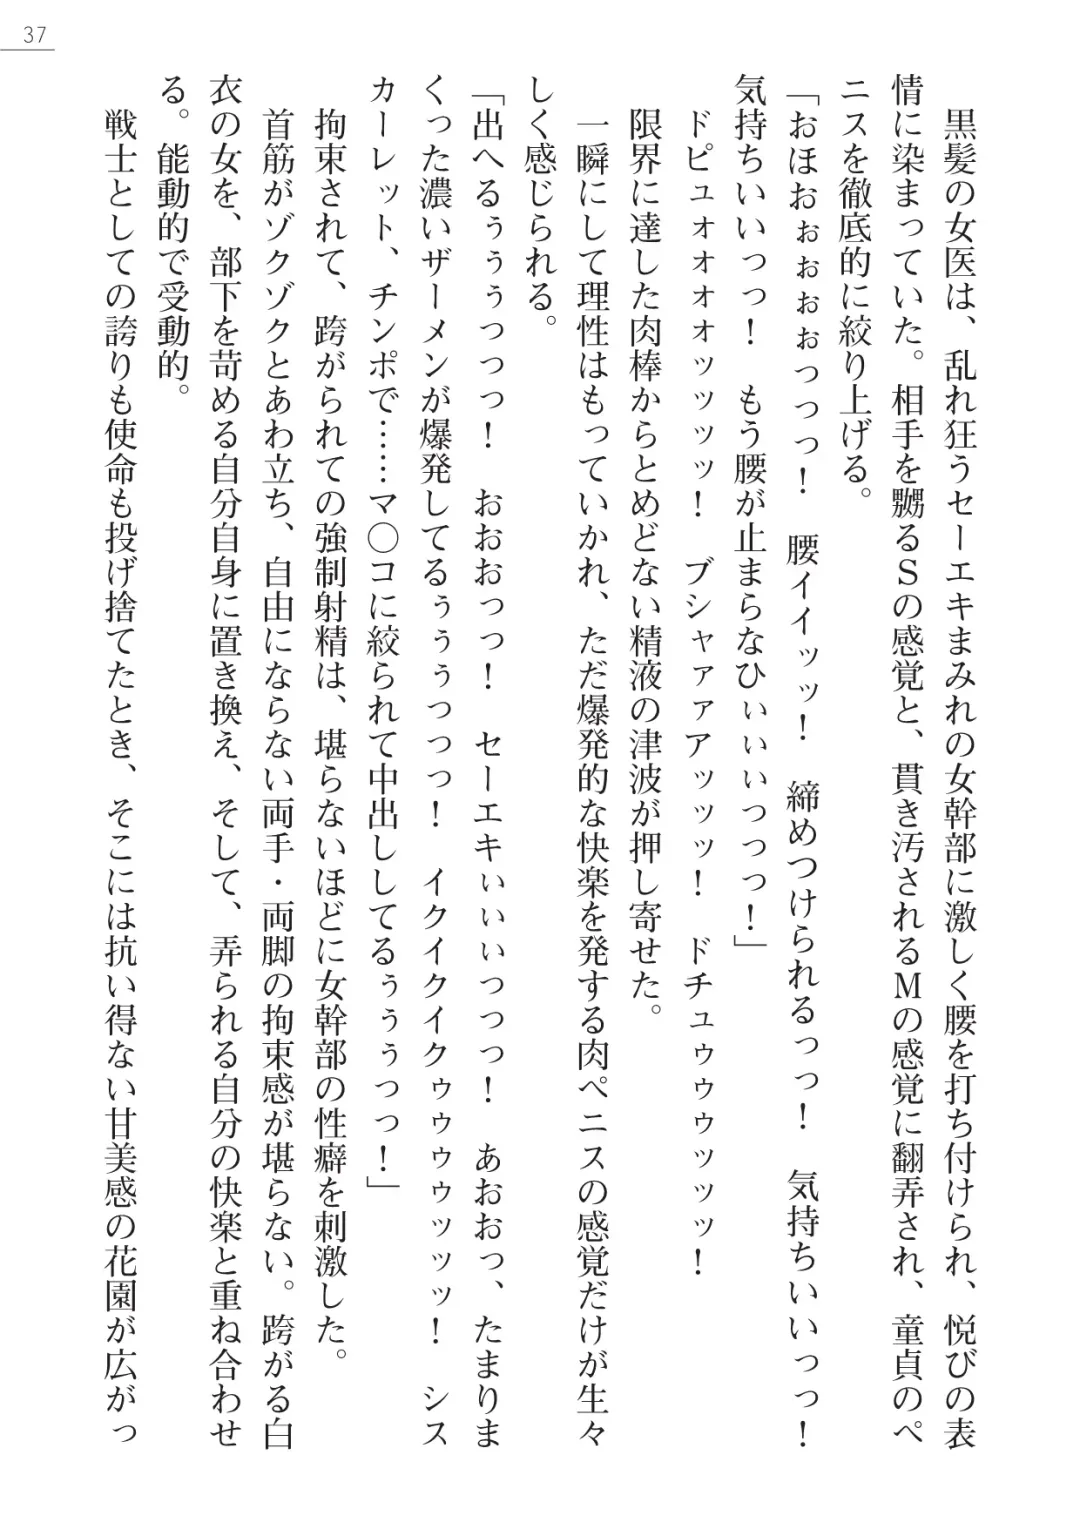 37
　黒髪の女医は、乱れ狂うセーエキまみれの女幹部に激しく腰を打ち付けられ、悦びの表
情に染まっていた。相手を嬲るSの感覚と、貫き汚されるMの感覚に翻弄され、童貞のペ
ニスを徹底的に絞り上げる。
「おほおぉぉぉぉっっっ！　腰イイッッ！　締めつけられるっっ！　気持ちいいっっ！
気持ちいいっっ！　もう腰が止まらなひぃぃぃっっっ！」
　ドピュォォォォッッッッ！　ブシャァァアッッッ！　ドチュゥゥゥッッッ！
　限界に達した肉棒からとめどない精液の津波が押し寄せた。
　一瞬にして理性はもっていかれ、ただ爆発的な快楽を発する肉ペニスの感覚だけが生々
しく感じられる。
「出へるぅぅぅっっっ！　おおおっっ！　セーエキぃぃぃっっっ！　あおおっ、たまりま
くった濃いザーメンが爆発してるぅぅぅっっっ！　イクイクイクゥゥゥゥッッッ！　シス
カーレット、チンポで……マ〇コに絞られて中出ししてるぅぅぅっっ！」
　拘束されて、跨がられての強制射精は、堪らないほどに女幹部の性癖を刺激した。
　首筋がゾクゾクとあわ立ち、自由にならない両手・両脚の拘束感が堪らない。跨がる白
衣の女を、部下を苛める自分自身に置き換え、そして、弄られる自分の快楽と重ね合わせ
る。能動的で受動的。
　戦士としての誇りも使命も投げ捨てたとき、そこには抗い得ない甘美感の花園が広がっ